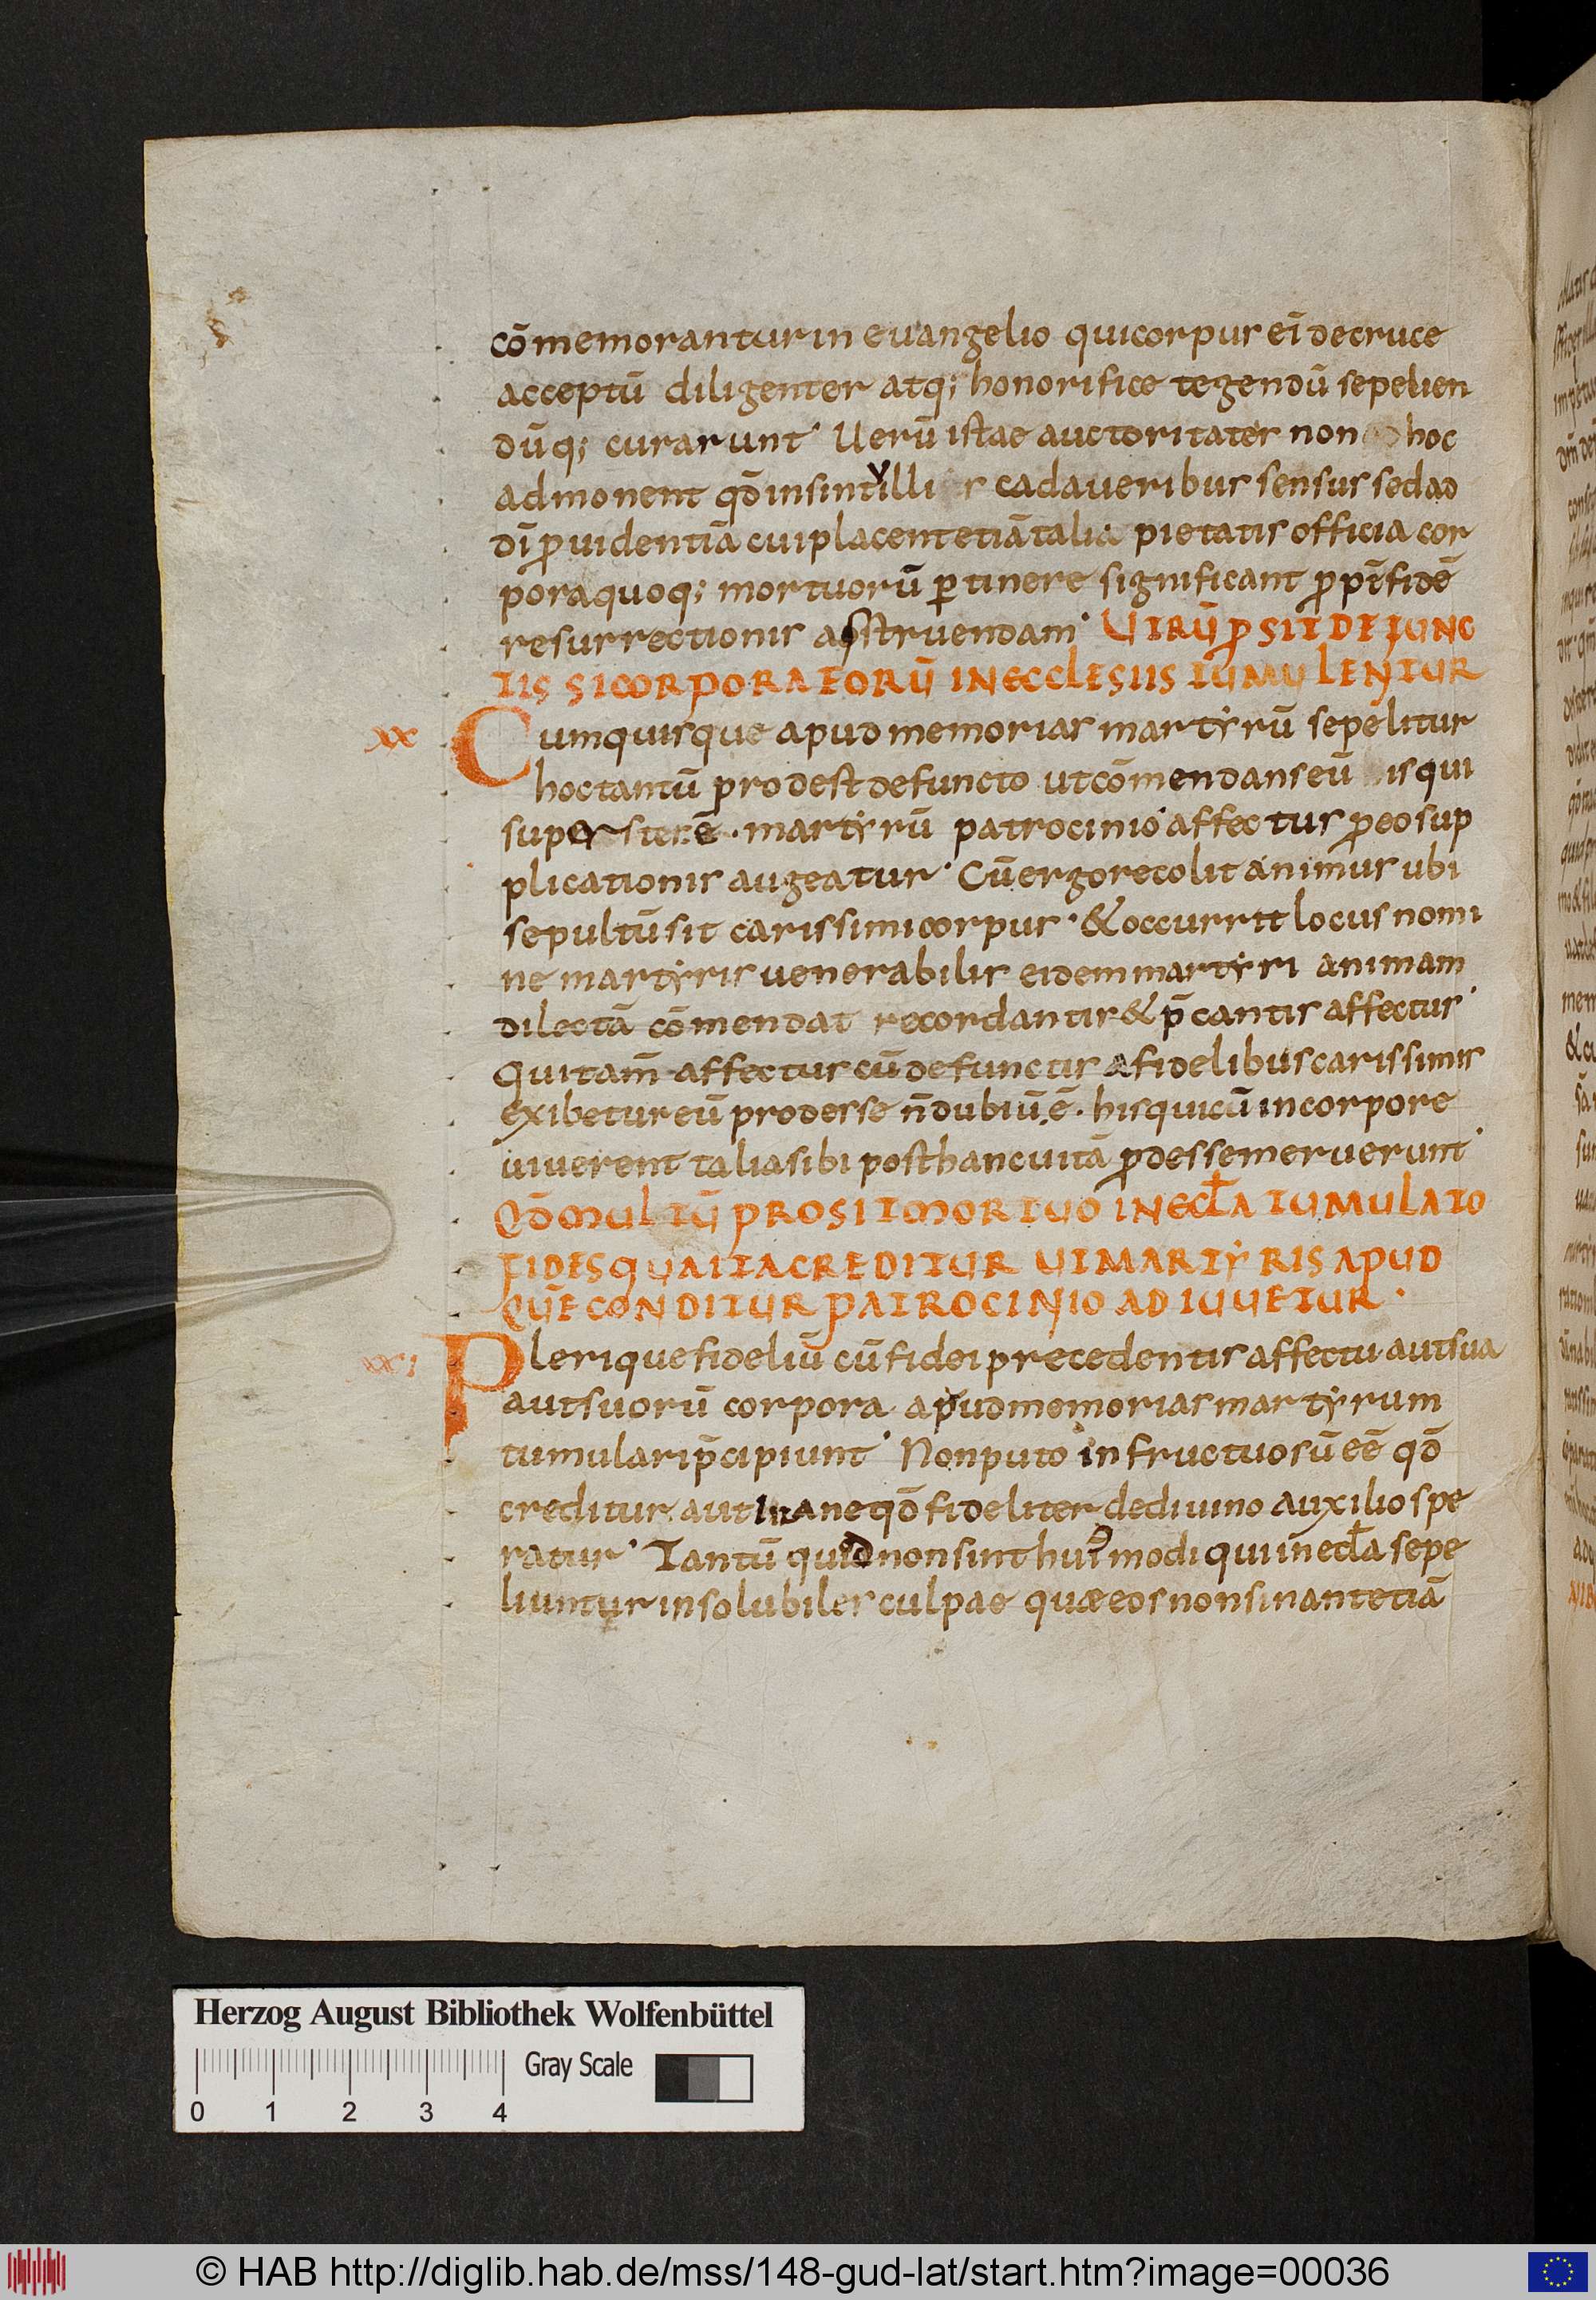 cōmemorantur in euangelio qui corpus ei decruce
acceptū diligenter atq; honorifice tegendū sepelien
dūq; curarunt Uerū istae auctoritates non hoc
admonent qđ insint illis cadaueribus sensus sed ad
dī ꝓuidentiā cui placent etiā talia pietatis officia cor
pora quoq; mortuorū ꝑtinere significant ꝓpt̄ fidē
resurrectionis astruendam UTRŪ ꝓSIT DEFUNC
TIS SI CORPORA EORŪ IN ECCLESIIS TUMULENTUR
xx Cum quisque apud memorias martẏrū sepelitur
hoc tantū prodest defuncto ut cōmendans eū is qui
superstes ē martẏrū patrocinio affectus ꝓ eo sup
plicationis augeatur Cū ergo recolit animus ubi
sepultū sit carissimi corpus & occurrit locus nomi
ne martẏris uenerabilis eidem martẏri animam
dilectā cōmendat recordantis & p̄cantis affectus
Qui tam̄ affectus cū defunctis a fidelibus carissimis
exibetur eū prodesse n̄ dubiū ē his qui cū in corpore
uiuerent talia sibi post hanc uitā ꝓdesse meruerunt
QĐ MULTŪ PROSIT MORTUO IN ECCƚA TUMULATO
FIDES QUA ITA CREDITUR UT MARTẎRIS APUD
QUĒ CONDITUR PATROCINIO ADIUUETUR
xxi Plerique fideliū cū fidei precedentis affectu aut sua
aut suorū corpora apud memorias martẏrum
tumulari p̄cipiunt Non puto infructuosū eē qđ
creditur aut inane qđ fideliter de diuino auxilio spe
ratur Tantū quid non sint huiꝰmodi qui in eccƚa sepe
liuntur insolubiles culpae quæ eos non sinant etiā
Herzog August Bibliothek Wolfenbüttel
Gray Scale
0 1 2 3 4
© HAB http://diglib.hab.de/mss/148-gud-lat/start.htm?image=00036